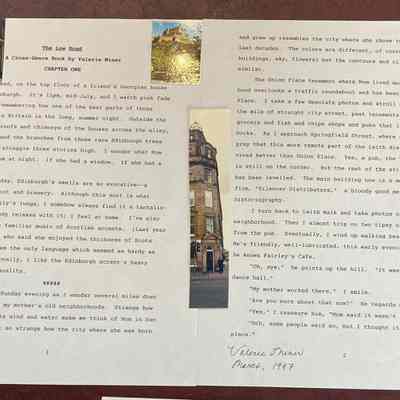 The Low Road
A Cross-Genre Book By Valerie Miner
CHAPTER ONE
on the top floor of a friend's Georgian house
It's 11pm, mid-July, and I watch pink fade
remembering how one of the best parts of those
Britain is the long, summer night. Outside the
roofs and chimneys of the houses across the alley,
the branches from three rare Edinburgh trees
struggle three stories high. I now know what Mom
at night. if she had a window. If she had a
Edinburgh's smells are so evocative--a
and brewery. Although this soot is what
lungs, I somehow always find it a tactile
release with it; I feel at home. I'm also
familiar music of Scottish accents. (Last year
who said she enjoyed the thickness of Scots
the only language which seemed as harsh as
I like the Edinburgh accent's heavy
*****
Sunday evening as I wander several miles down
my mother's old neighborhoods. Strange how
wind and water make me think of Mom in San
so strange how the city where she was born
1
and grew up resembles the city where she chose to
last decades. The colors are different, of course
buildings, sky, flowers) but the contours and
similar.
The Union Place tenement where Mom lived
Good overlooks a traffic roundabout and has been
Place. I take a few desolate photos and stroll
the mile of straight city street, past tenements
grocers and fish and chips shops and pubs that
bucks. As I approach Springfield Street, where
grey that this more remote part of the Leith
been levelled. The main building now is a
film, "Silencer Distributers," a bloody good
historiography.
I turn back to Leith Walk and take photos
neighborhood. Then I almost trip on two tipsy
from the pub. Eventually, I wind up walking
He's friendly, well-lubricated, this early
he knows Fairley's Cafe.
"Oh, aye," he points up the hill. "It
dance hall."
"My mother worked there." I smile.
"Are you sure about that now?" He regards
"Yes," I reassure him, "Mom said it wasn't
"Och, some people said so, but I thought it
place."
Valerie Miner
March, 1997
2